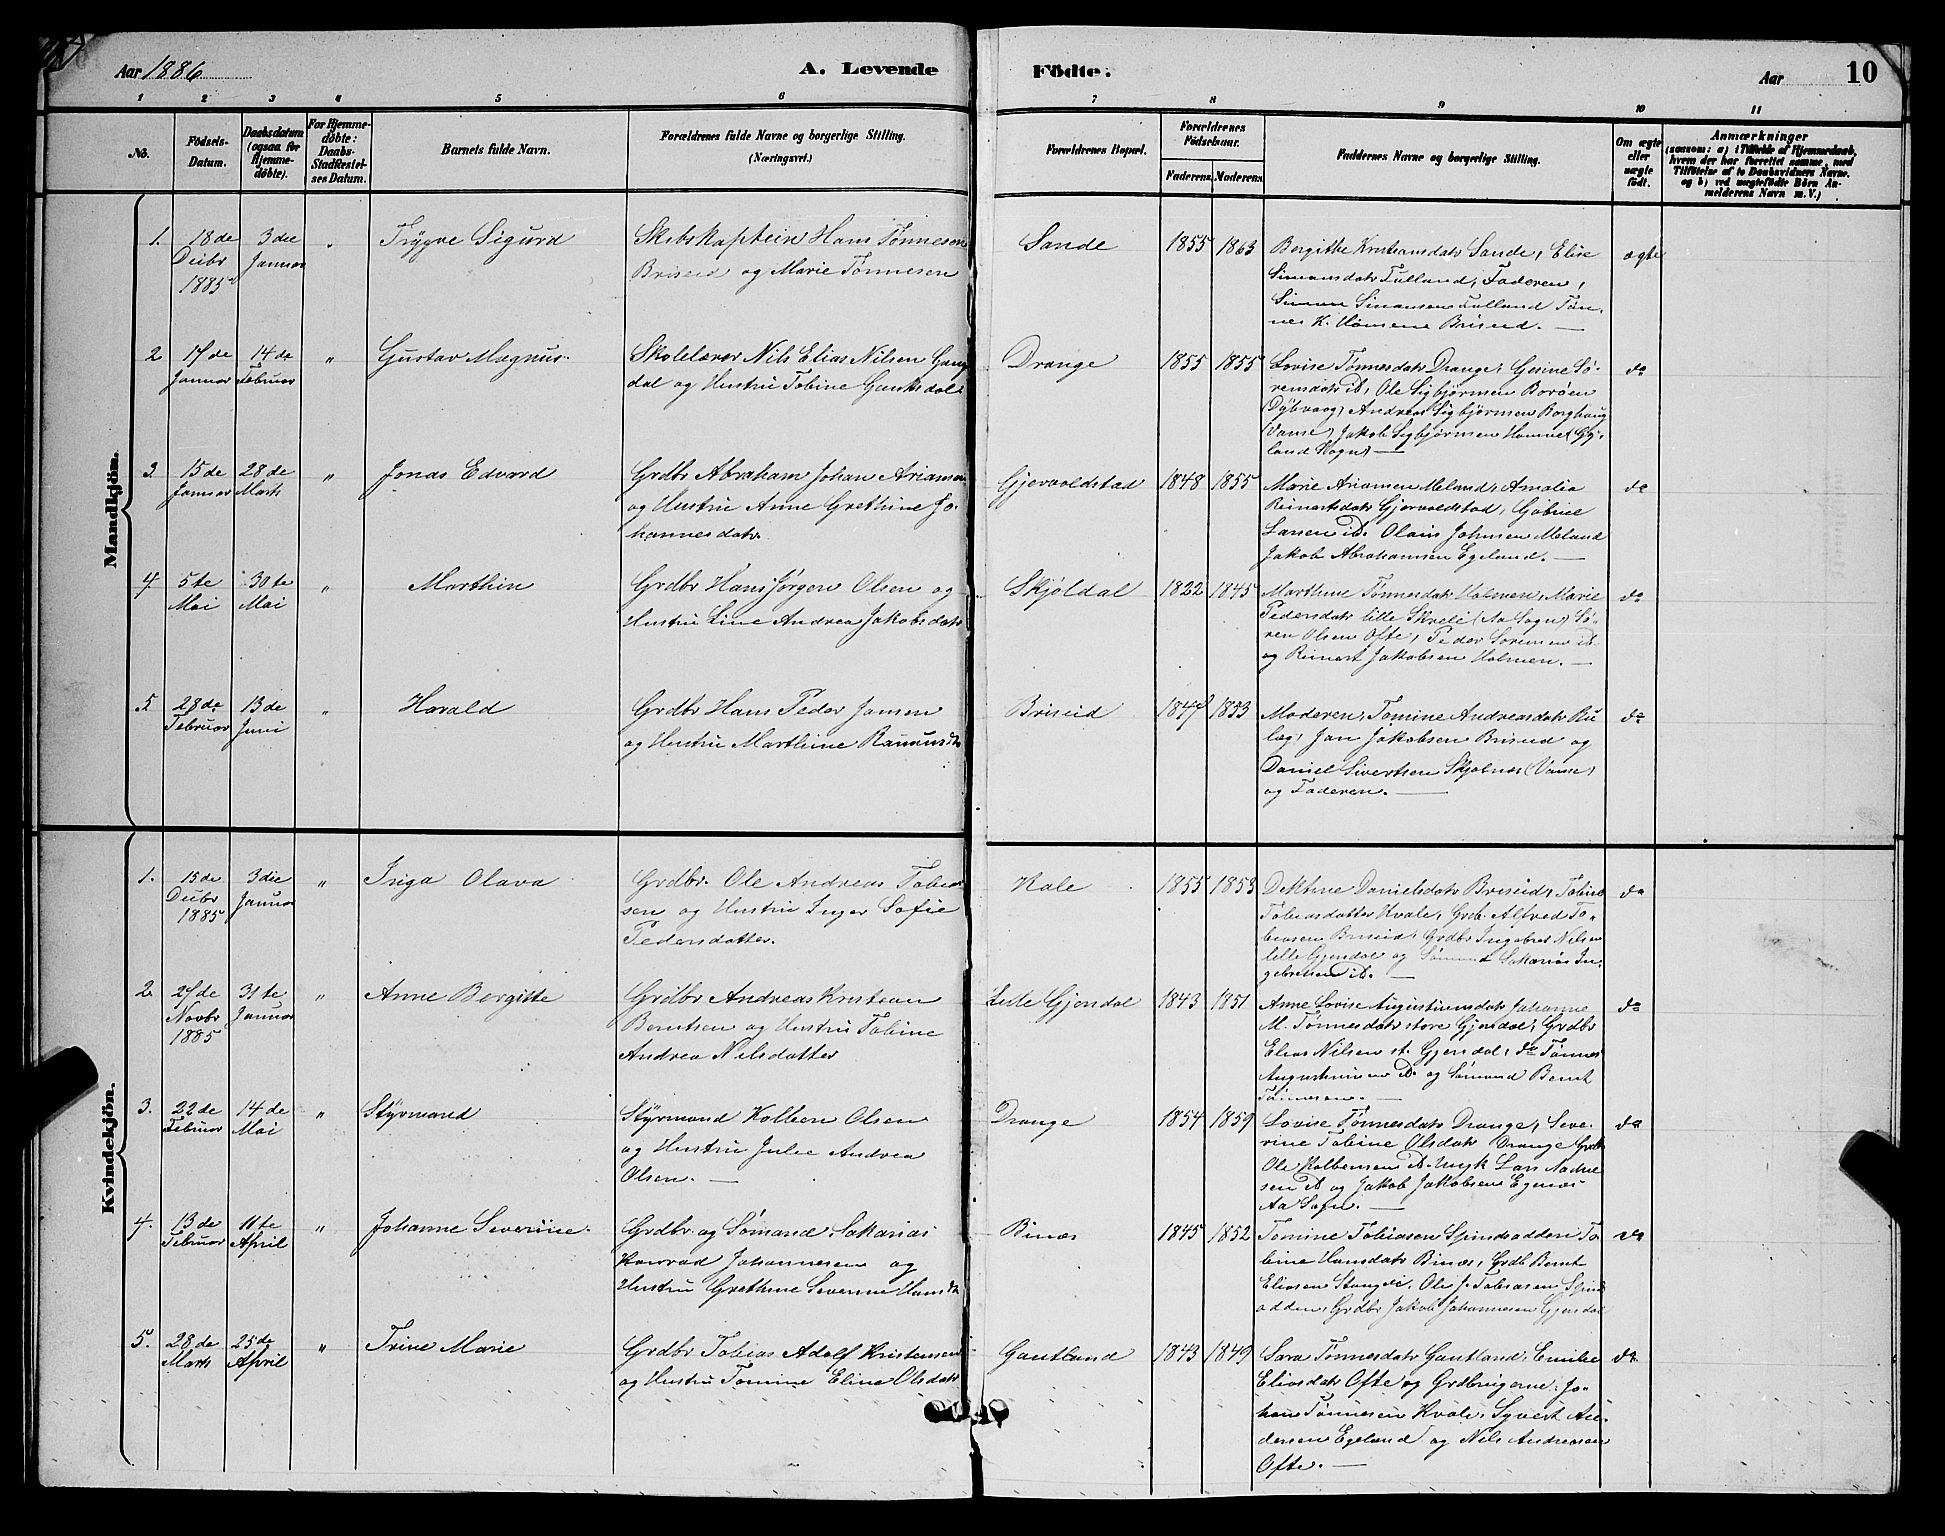 Aar 1886
A. Levende Födte.
Aar
10
1 2 3 4 5 6 7 8 9 10 11
No.
Födsels-
Datum.
Daabsdatum
(ogsaa for
Hjemme-
döbte).
For Hjemme-
döbte:
Daabs-
Stadfæstel-
ses Datum.
Barnets fulde Navn.
Forældrenes fulde Navne og borgerlige Stilling.
(Næringsvei.)
Forældrenes Bopæl.
Forældrenes
Födselsaar.
Faderens. Moderens.
Faddernes Navne og borgerlige Stilling.
Om ægte
eller
uægte
födt.
Anmærkninger
(saasom: a) i Tilfælde af Hjemmedaab,
hvem der har forrettet samme, med
Tilföielse af to Daabsvidners Navne.
og b) ved uægtefödte Börn An-
melderens Navn m. V.)
Mandkjön.
1.
18de
Decbr
1885
3die
Januar
"
Trÿgve Sigurd
Skibskaptein Hans Tønnesen
Briseid og Marie Tønnesen
Sande
1855
1863
Borgitte Kristiansdatr Sande, Elise
Simonsdatr Tulland, Faderen,
Simon Simonsen Tulland Tøn-
nes K. Briseid.
ægte
2
17de
Januar
14de
Februar
"
Gustav Magnus.
Skolelærer Nils Elias Nilsen
dal og Hustru Tobine
Drange
1855
1855
Lovise Tønnesdatr Drange, Gusine Sø-
rensdatr it, Ole Sigbjørnsen Borøen
(Dÿbvaag) Andreas Sigbjørnsen Borghaug
(Vanse) Jakob Sigbjørnsen
land Sogn)
do
3
15de
Januar
28de
Marts
"
Jonas Edvard
Grdbr Abraham Johan Ariansen
og Hustru Anne Grethine Jo-
hannesdatr.
Gjervoldstad
1848
1855
Marie Ariansen Meland, Amalia
Reinertsdatr Gjervoldstad, Gabriel
Larsen it. Olain Johnsen Meland
Jakob Abrahamsen Egeland.
do
4
5te
Mai
30te
Mai
"
Marthin
Grdbr Hans Jørgen Olsen og
Hustru Line Andrea Jakobsdatr
Skjøldal
1822
1845
Marthine Tønnesdatr Holmen, Marie
Pedersdatr lille Skreli (Aa Sogn) Sø-
ren Olsen Ofte, Peder Sørensen it
og Reinert Jakobsen Holmen.
do
5
28de
Februar
13de
Juni
"
Harald
Grdbr Hans Peder Jansen
og Hustru Marthine
Briseid
1847
1853
Moderen, Tomine Andreasdatr
Jan Jakobsen Briseid og
Daniel Sivertsen Skjolnes (Vanse)
og Faderen.
do
Kvindekjön.
1.
15de
Decbr
1885
3die
Januar
"
Inga Olava
Grdbr. Ole Andreas Tobia-
sen og Hustru Inger Sofie
Pedersdatter.
Kvale
1855
1853
Danielsdatr Briseid, Tobine
Tobiasdatter Kvale, Grdb. Alfred To-
biasen Briseid, Grdbr Ingebret Nilsen
lille Gjendal og Sømand Sakarias In-
gebretsen it.
do
2.
27de
Novbr
1885
31te
Januar
"
Anne Borgitte
Grdbr Andreas Kristian
Berntsen og Hustru Tobine
Andrea Nilsdatter
Lille Gjendal
1843
1851
Anne Lovise Augustinusdatr Johanne
M. Tønnesdatr store Gjendal, Grdbr
Elias Nilsen st. Gjendal, do Tønnes
Augustinusen it og Sømand Bernt
Tønnesen.
do
3.
22de
Februar
14de
Mai
"
Stÿrmand
Stÿrmand Kolben Olsen
og Hustru Julie Andrea
Olsen.
Drange
1854
1859
Lovise Tønnesdatr Drange, Seve-
rine Tobine Olsdatr Drange Grdbr
Ole Kolbensen it. Ungk Lars
sen it og Jakob Jakobsen Egenes
Aa Sogn.
do
4.
13de
Februar
11te
April
"
Johanne Severine.
Grdbr og Sømand Sakarias
Konrad Johannesen og
Hustru Grethine Severine Hansdr
Binæs
1845
1852
Tomine Tobiasen Spindsodden To-
bine Hansdatr Binæs, Grdb Bernt
Eliasen Stangvi, Ole J. Tobiasen Spind
odden, Grdbr Jakob Johannesen Gjendal
do
5.
28de
Marts
25de
April
"
Trine Marie
Grdbr Tobias Adolf Kristensen
og Hustru Tomine Eline Olsdatr
Gautland
1843
1849
Sara Tønnesdatr Gautland, Emilie
Eliasdatr Ofte og Grdbrugerne: Jo-
han Tønnesen Kvale, Syvert An-
dersen Egeland og Nils Andreasen
Ofte.
do